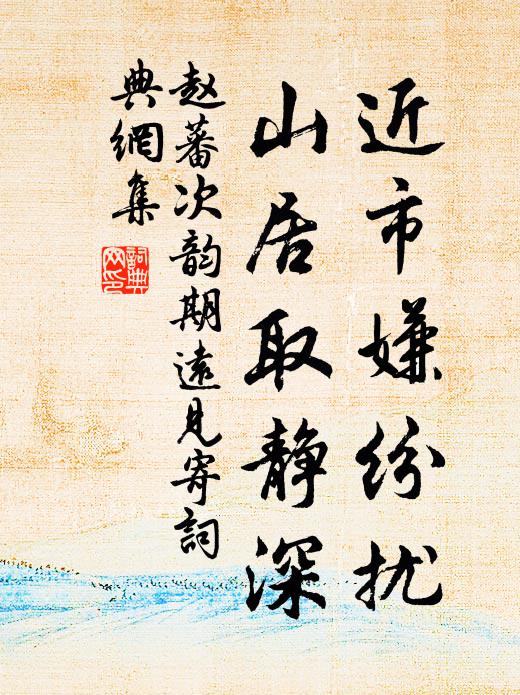 近市嫌纷扰
山居取静深
赵蕃次韵期遠见寄詞
典網集
詞典
网印